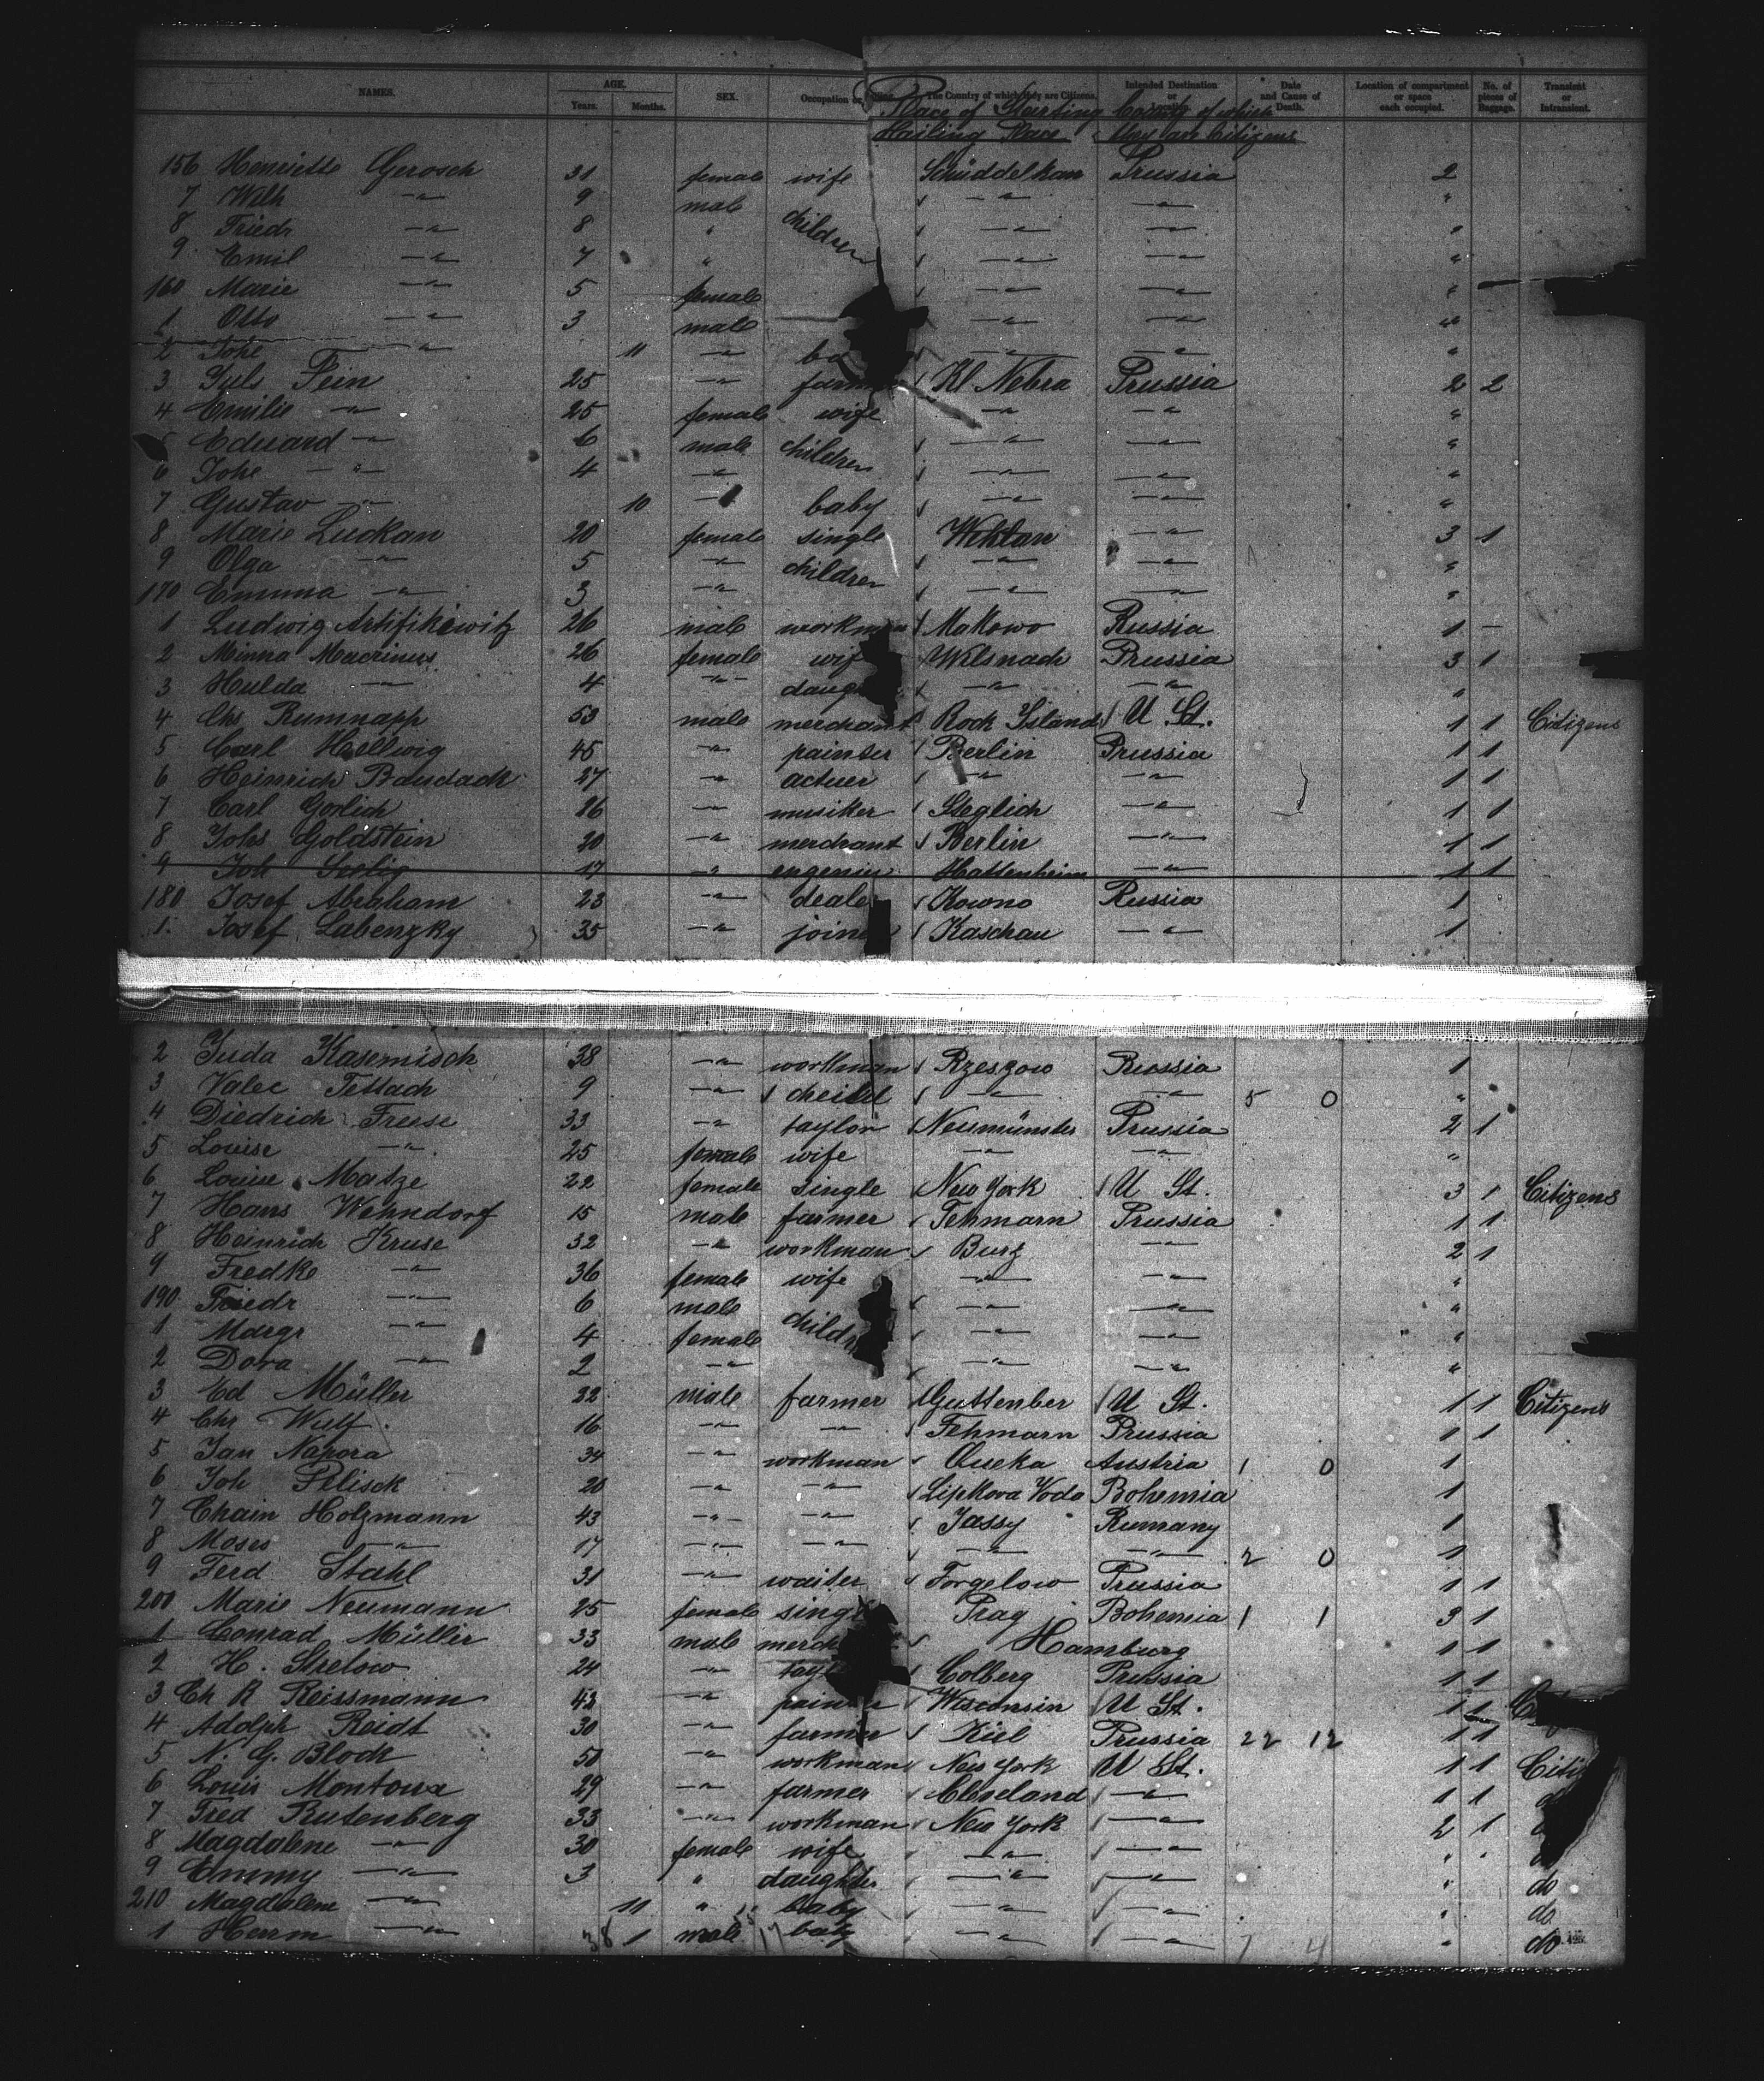 NAMES. AGE. Years. Months. SEX. Occupation or The Country of which they are Citizens. Intended Destination or Date and Cause of Death. Location of compartment or space each occupied. No. of pieces of Baggage. Transient or Intransient.
Place of Starting County of which
Hailing Place they are Citizens
156 Henriette Gerosch 31 female wife Schuddelkan Prussia 2
7 Wilh —"— 9 male children —"— —"— "
8 Friedr —"— 8 " —"— —"— "
9 Emil —"— 7 " —"— —"— "
160 Marie —"— 5 female —"— —"— "
1 Otto —"— 3 male —"— —"— "
2 Johe —"— 11 —"— ba —"— —"— "
3 Juls Pein 25 —"— farmer Kl Nebra Prussia 2 2
4 Emilie —"— 25 female wife —"— —"— "
5 Eduard —"— 6 male children —"— —"— "
6 Johe —"— 4 —"— —"— —"— "
7 Gustav —"— 10 —"— baby —"— —"— "
8 Marie Luckan 20 female single Wehlan —"— 3 1
9 Olga —"— 5 —"— children —"— —"— "
170 Emma —"— 3 —"— —"— —"— "
1 Ludwig Artifikewitz 26 male workman Makowo Russia 1 —
2 Minna Macrinus 26 female wif Wilsnach Prussia 3 1
3 Hulda —"— 4 —"— daug —"— —"— "
4 Chs Rumnapp 53 male merchant Rock Island U St. 1 1 Citizens
5 Carl Hellwig 45 —"— painter Berlin Prussia 1 1
6 Heinrich Baudach 27 —"— actuer —"— —"— 1 1
7 Carl Gorlich 26 —"— musiker Steglich —"— 1 1
8 Johs Goldstein 20 —"— merchant Berlin —"— 1 1
9 Joh Seelig 17 —"— engenier Hattenheim —"— 1 1
180 Josef Abraham 23 —"— dealer Kowno Russia 1
1 Josef Labenzky 35 —"— joine Kaschau —"— 1
2 Juda Kasemisch 38 —"— workman Rzeszow Russia 1
3 Valec Tettach 9 —"— cheild —"— —"— 5 0 "
4 Diedrich Freese 33 —"— taylor Neumünster Prussia 2 1
5 Louise —"— 25 female wife —"— —"— "
6 Louise Matze 22 female single New York U St. 3 1 Citizens
7 Hans Wehndorf 15 male farmer Fehmarn Prussia 1 1
8 Heinrich Kruse 32 —"— workman Burg —"— 2 1
9 Fredke —"— 36 female wife —"— —"— "
190 Friedr —"— 6 male childr —"— —"— "
1 Margr —"— 4 female —"— —"— "
2 Dora —"— 2 —"— —"— —"— "
3 Ed Müller 22 male farmer Guttenber U St. 1 1 Citizens
4 Chr Wulf 16 —"— —"— Fehmarn Prussia 1 1
5 Jan Napora 34 —"— workman Austria 1 0 1
6 Joh Pelisck 20 —"— —"— Lipkova Voda Bohemia 1
7 Chain Holzmann 43 —"— —"— Jassy Rumany 1
8 Moses —"— 17 —"— —"— —"— —"— 2 0 1
9 Ferd Stahl 31 —"— waiter Torgelow Prussia 1 1
200 Marie Neumann 25 female singl Prag Bohemia 1 1 3 1
1 Conrad Müller 33 male merch Hamburg 1 1
2 H. Strelow 24 —"— tayl Colberg Prussia 1 1
3 Ch R Reissmann 42 —"— painter Wisconsin U St. 1 1
4 Adolph Reidt 30 —"— farmer Kiel Prussia 22 12 1 1
5 N. G. Block 50 —"— workman New York U St. 1 1 Citi
6 Louis Montoura 29 —"— farmer Cleveland —"— 1 1 d
7 Fred Rutenberg 33 —"— workman New York —"— 2 1
8 Magdalene —"— 30 female wife —"— —"— " "
9 Emmy —"— 3 " daughter —"— —"— " do
210 Magdalene —"— 11 " baby —"— —"— " do
1 Herrm —"— 1 male baby —"— —"— " do